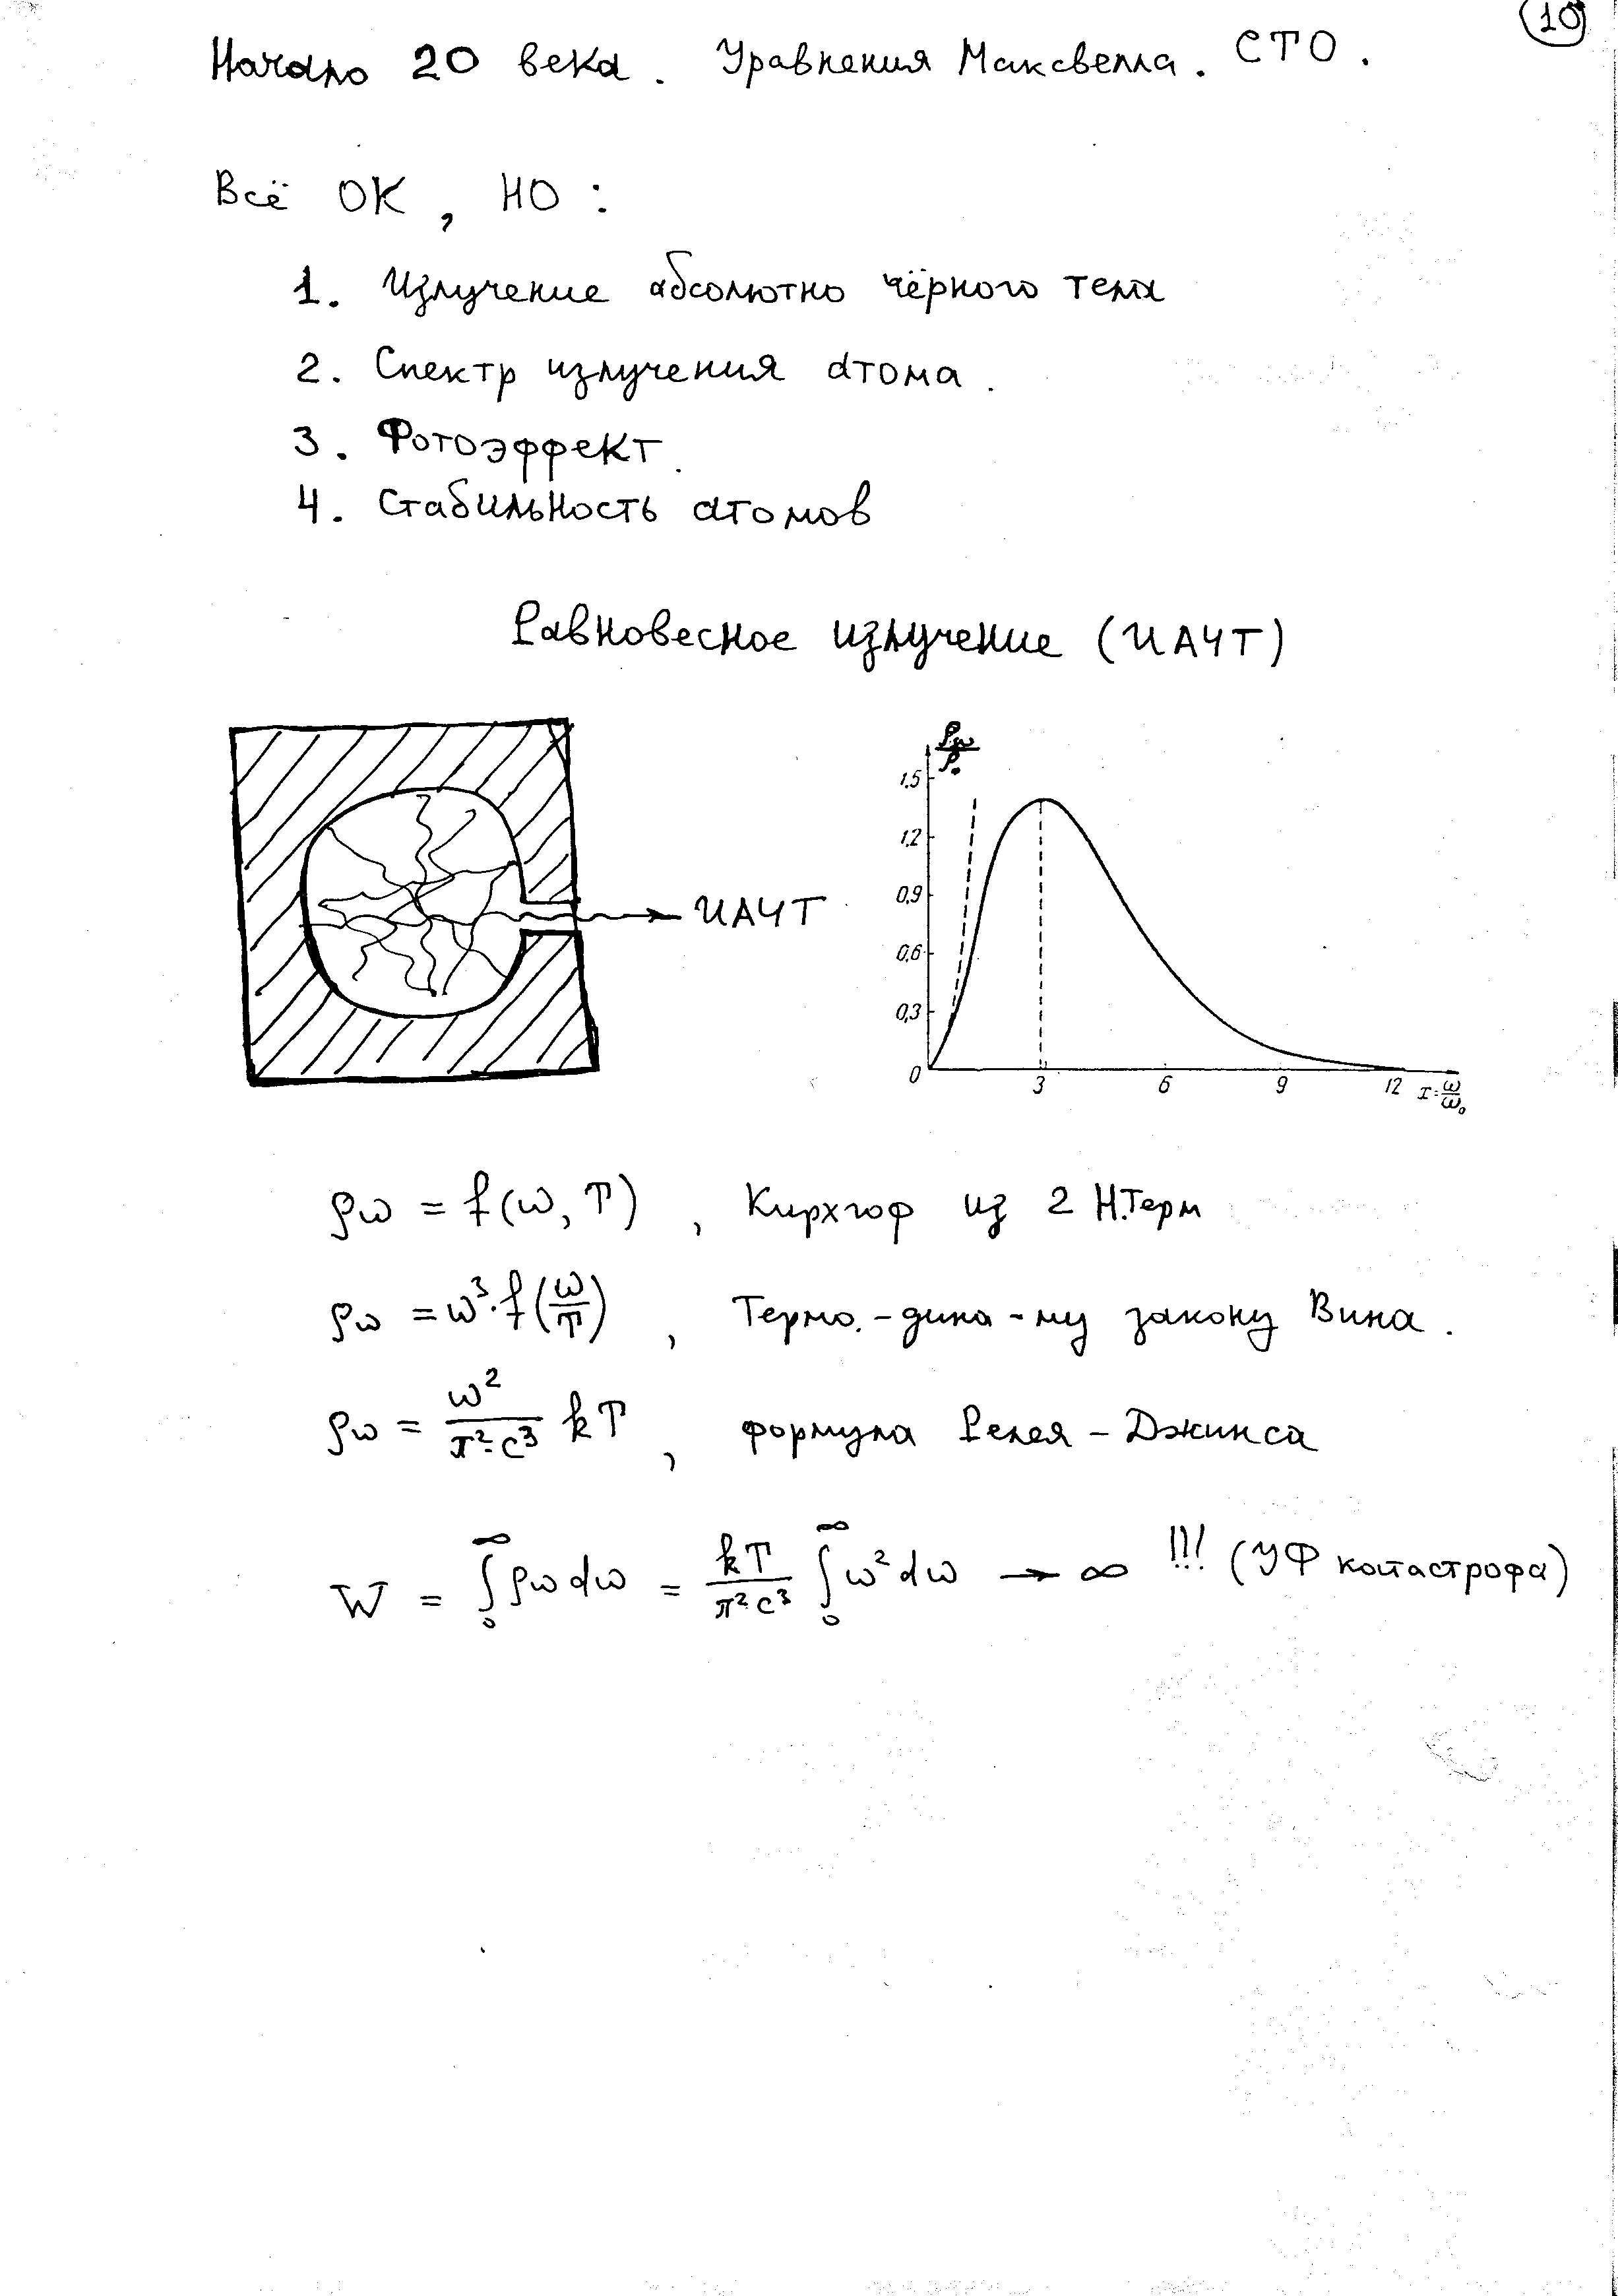 10
Начало 20 века. Уравнения Максвелла. СТО.
Всё ОК, НО:
1. Излучение абсолютно чёрного тела
2. Спектр излучения атома.
3. Фотоэффект.
4. Стабильность атомов
Равновесное излучение (ИАЧТ)
ИАЧТ
ρω/ρ₀
1,5
1,2
0,9
0,6
0,3
0
3 6 9 12 x=ω/ω₀
ρω = f(ω, T), Кирхгоф из 2 Н.Терм
ρω = ω³·f(ω/T), Термо.-дина-му закону Вина.
ρω = ω²/π²c³ kT, формула Релея-Джинса
W = ∫₀^∞ ρω dω = kT/π²c³ ∫₀^∞ ω² dω → ∞ !!! (УФ катастрофа)